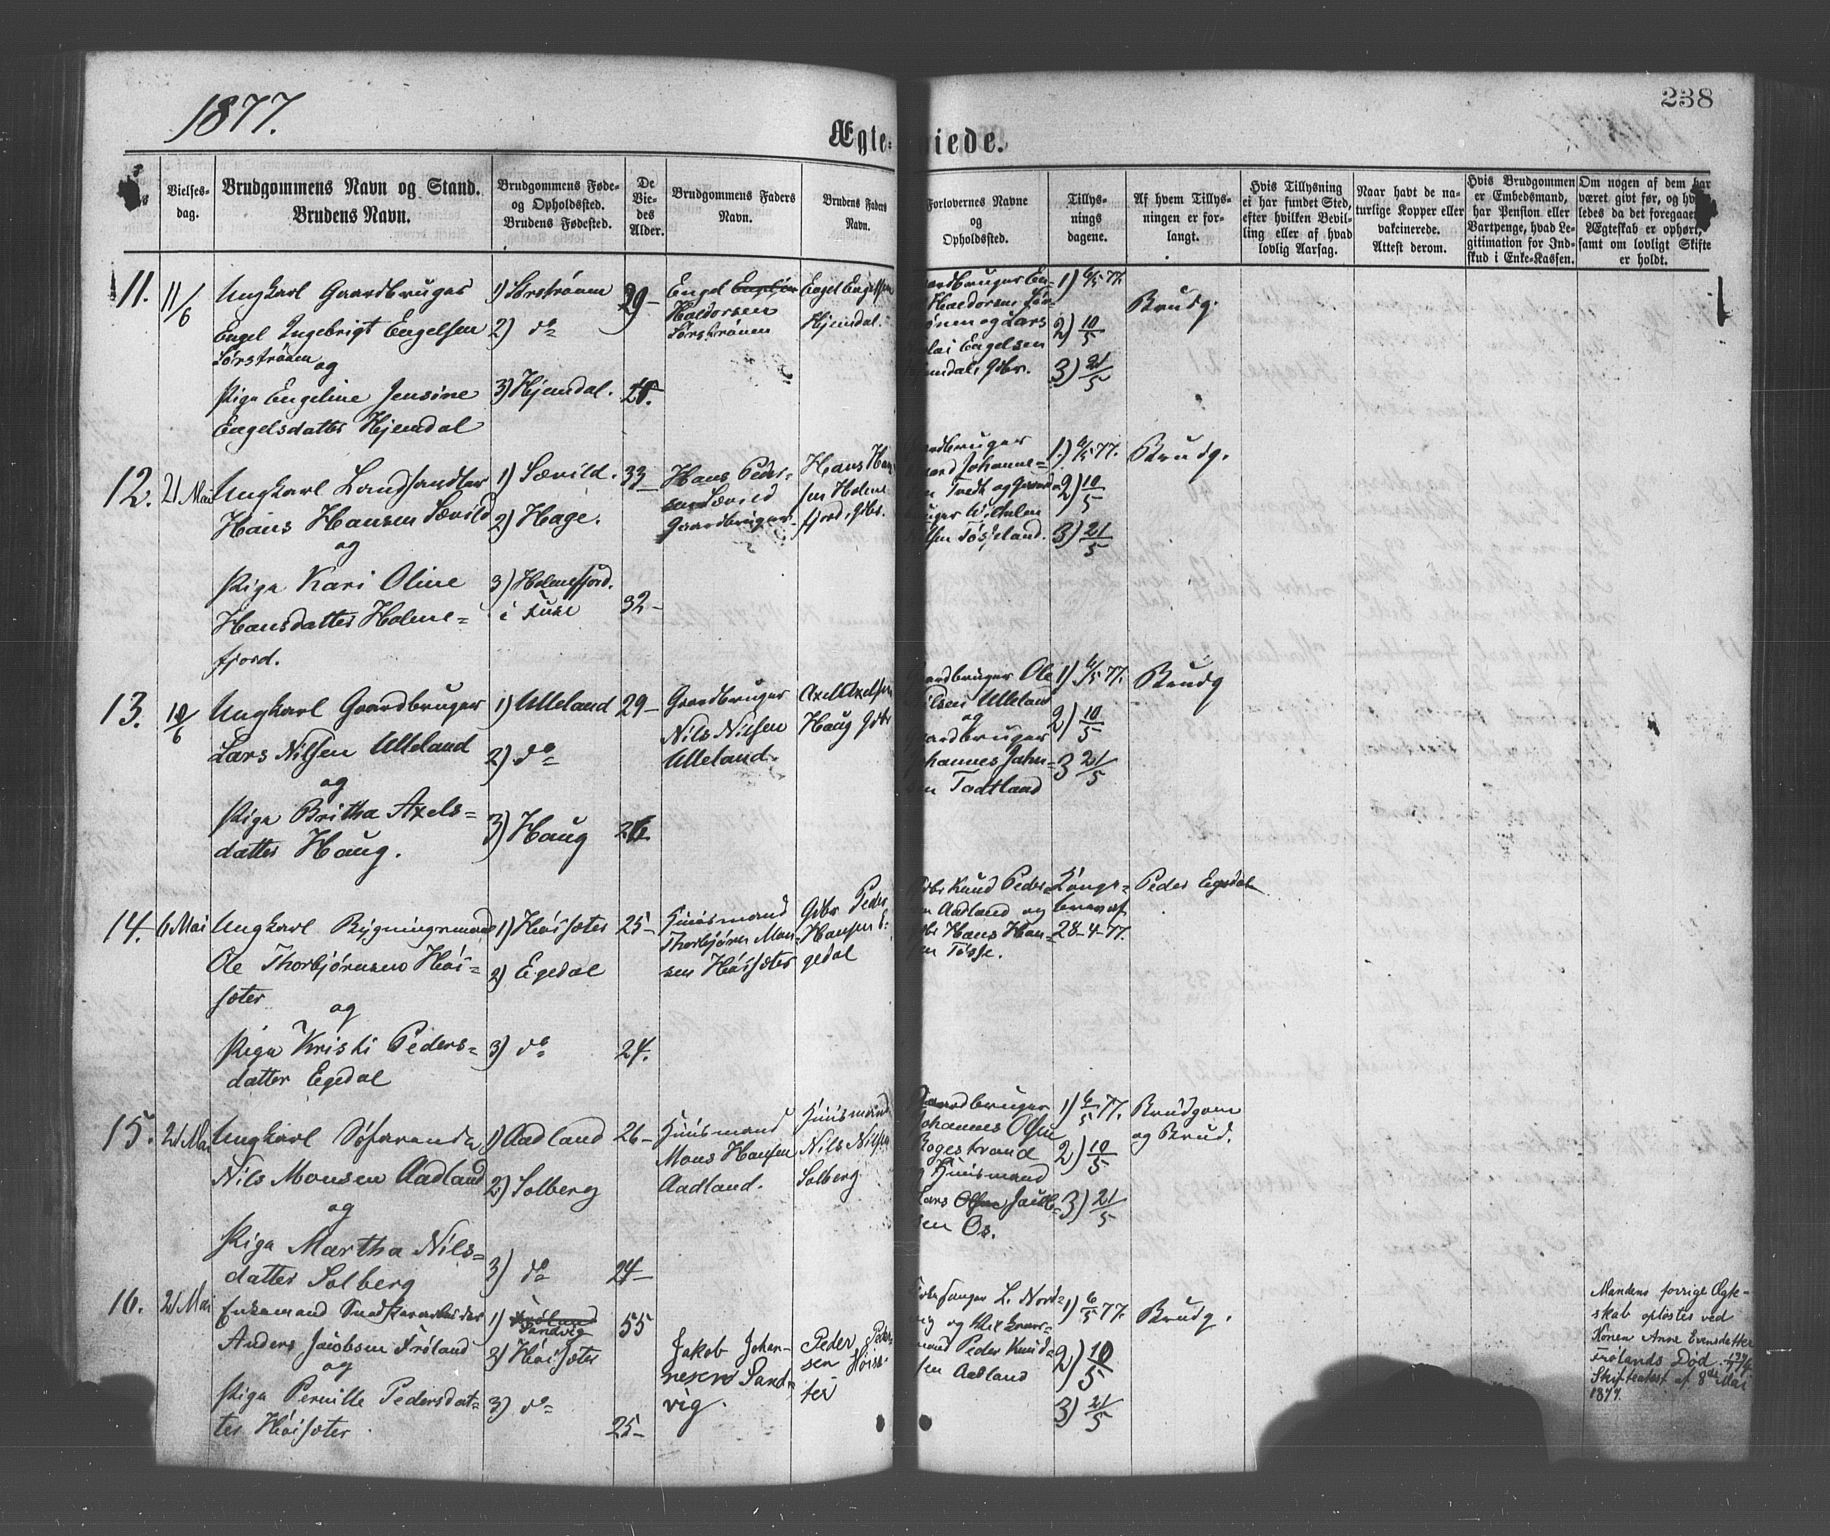 1877.
238
Ægte=
viede.
Vielses-
dag.
Brudgommens Navn og Stand.
Brudens Navn.
Brudgommens Føde-
og Opholdsted.
Brudens Fødested.
De
Vie-
des
Alder.
Brudgommens Faders
Navn.
Brudens Faders
Navn.
Forlovernes Navne
og
Opholdsted.
Tillys-
nings
dagene.
Af hvem Tillys-
ningen er for-
langt.
Hvis Tillysning
ei har fundet Sted,
efter hvilken Bevil-
ling eller af hvad
lovlig Aarsag.
Naar havt de na-
turlige Kopper eller
vakcinerede.
Attest derom.
Hvis Brudgommen
er Embedsmand,
har Pension eller
Vartpenge, hvad Le-
gitimation for Ind-
skud i Enke-Kassen.
Om nogen af dem har
været givt før, og hvor-
ledes da det foregaaende
Ægteskab er ophørt,
samt om lovligt Skifte
er holdt.
11.
11/6
Ungkarl Gaardbruger
Engel Ingebrigt Engelsen
Sørstrønen
og
Piga Engeline Jensine
Engelsdatter Hjemdal
1) Sørstrønen
2) do
3) Hjemdal.
29-
Engel
Haldorsen
Sørstrønen
Engel Engelsen
Hjemdal.
Gaardbruger En-
Haldorsen Sør-
strønen og Lars
Engelsen
Hjemdal, Gdbr.
1) 6/5 77.
2) 10/5
3) 21/5
Brudg.
12.
21 Mai
Ungkarl Landhandler
Hans Hansen Sævild
og
Piga Kari Oline
Hansdatter Holme=
fjord.
1) Sævild.
2) Hage.
3) Holmefjord.
i Fuse
33-
32-
Hans Peder-
sen Sævild
Gaardbruger.
Hans Han
sen Holme
fjord, Gdbr.
Gaardbruger
Johanne=
Tvedt og Gaard
bruger Wilhelm
1.) 6/5 77.
2) 10/5
3) 21/5
Brudg.
13.
10/6
Ungkarl Gaardbruger
Lars Nilsen Ulleland
og
Piga Britha Axels=
datter Haug.
1) Ulleland
2) do
3) Haug
29-
26
Gaardbruger
Nils Nilsen
Ulleland.
Axel Axelsen
Haug Gdbr
Gaardbruger Ole
Nilsen Ulleland
og
Gaardbruger
Johannes John-
sen
1) 6/5 77.
2) 10/5
3 21/5
Brudg
14.
6 Mai
Ungkarl Bygningsmand
Ole Thorbjørnsen Høi=
sæter
og
Piga Kristi Peders=
datter Egedal
1) Høisæter
2) Egedal
3) do
25-
24.
Huusmand
Thorbjørn Mon-
sen Høisæter
Gdbr Peder
Hansen E-
gedal
Gdbr Knud Peder-
sen Aadland og
Gdbr Hans Han-
sen Tøsse.
Konge-
brev af
28-4-77.
Peder Egedal
15.
21 Mai
Ungkarl
Nils Monsen Aadland
og
Piga Martha Nils=
datter Solberg
1) Aadland
2) Solberg
3) do
26-
24-
Huusmand
Mons Hansen
Aadland.
Huusmand
Nils Nilsen
Solberg
Gaardbruger
Johannes Olsen
Rogestrand
og Huusmand
Lars Olsen
sen Os.
1) 6/5 77.
2) 10/5
3) 21/5
Brudgom
og Brud.
16.
21 Mai
Enkemand
Anders Jacobsen Frøland
og
Piga Pernille Pedersdat-
ter Høisæter
1) Frøland
Sandvig
2) Høisæter
3) do
55
25-
Jakob Johan-
nesen Sand-
vig.
Peder Peder
sen Høisæ-
ter
Kirkesanger L. Nord-
vig og
Peder Knud-
sen Aadland
1) 6/5 77.
2) 10/5
3) 21/5
Brudg.
Mandens forrige Ægte-
skab opløstes ved
Konen Anne Evensdatter
Frølands Død
Skifteattest af 8de Mai
1877.